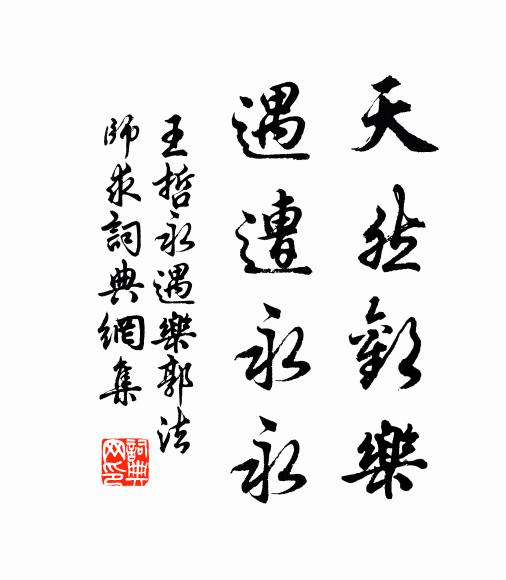 天然歡樂
遇遭永永
王哲永遇樂郭法
師求詞典網集
詞典
网印